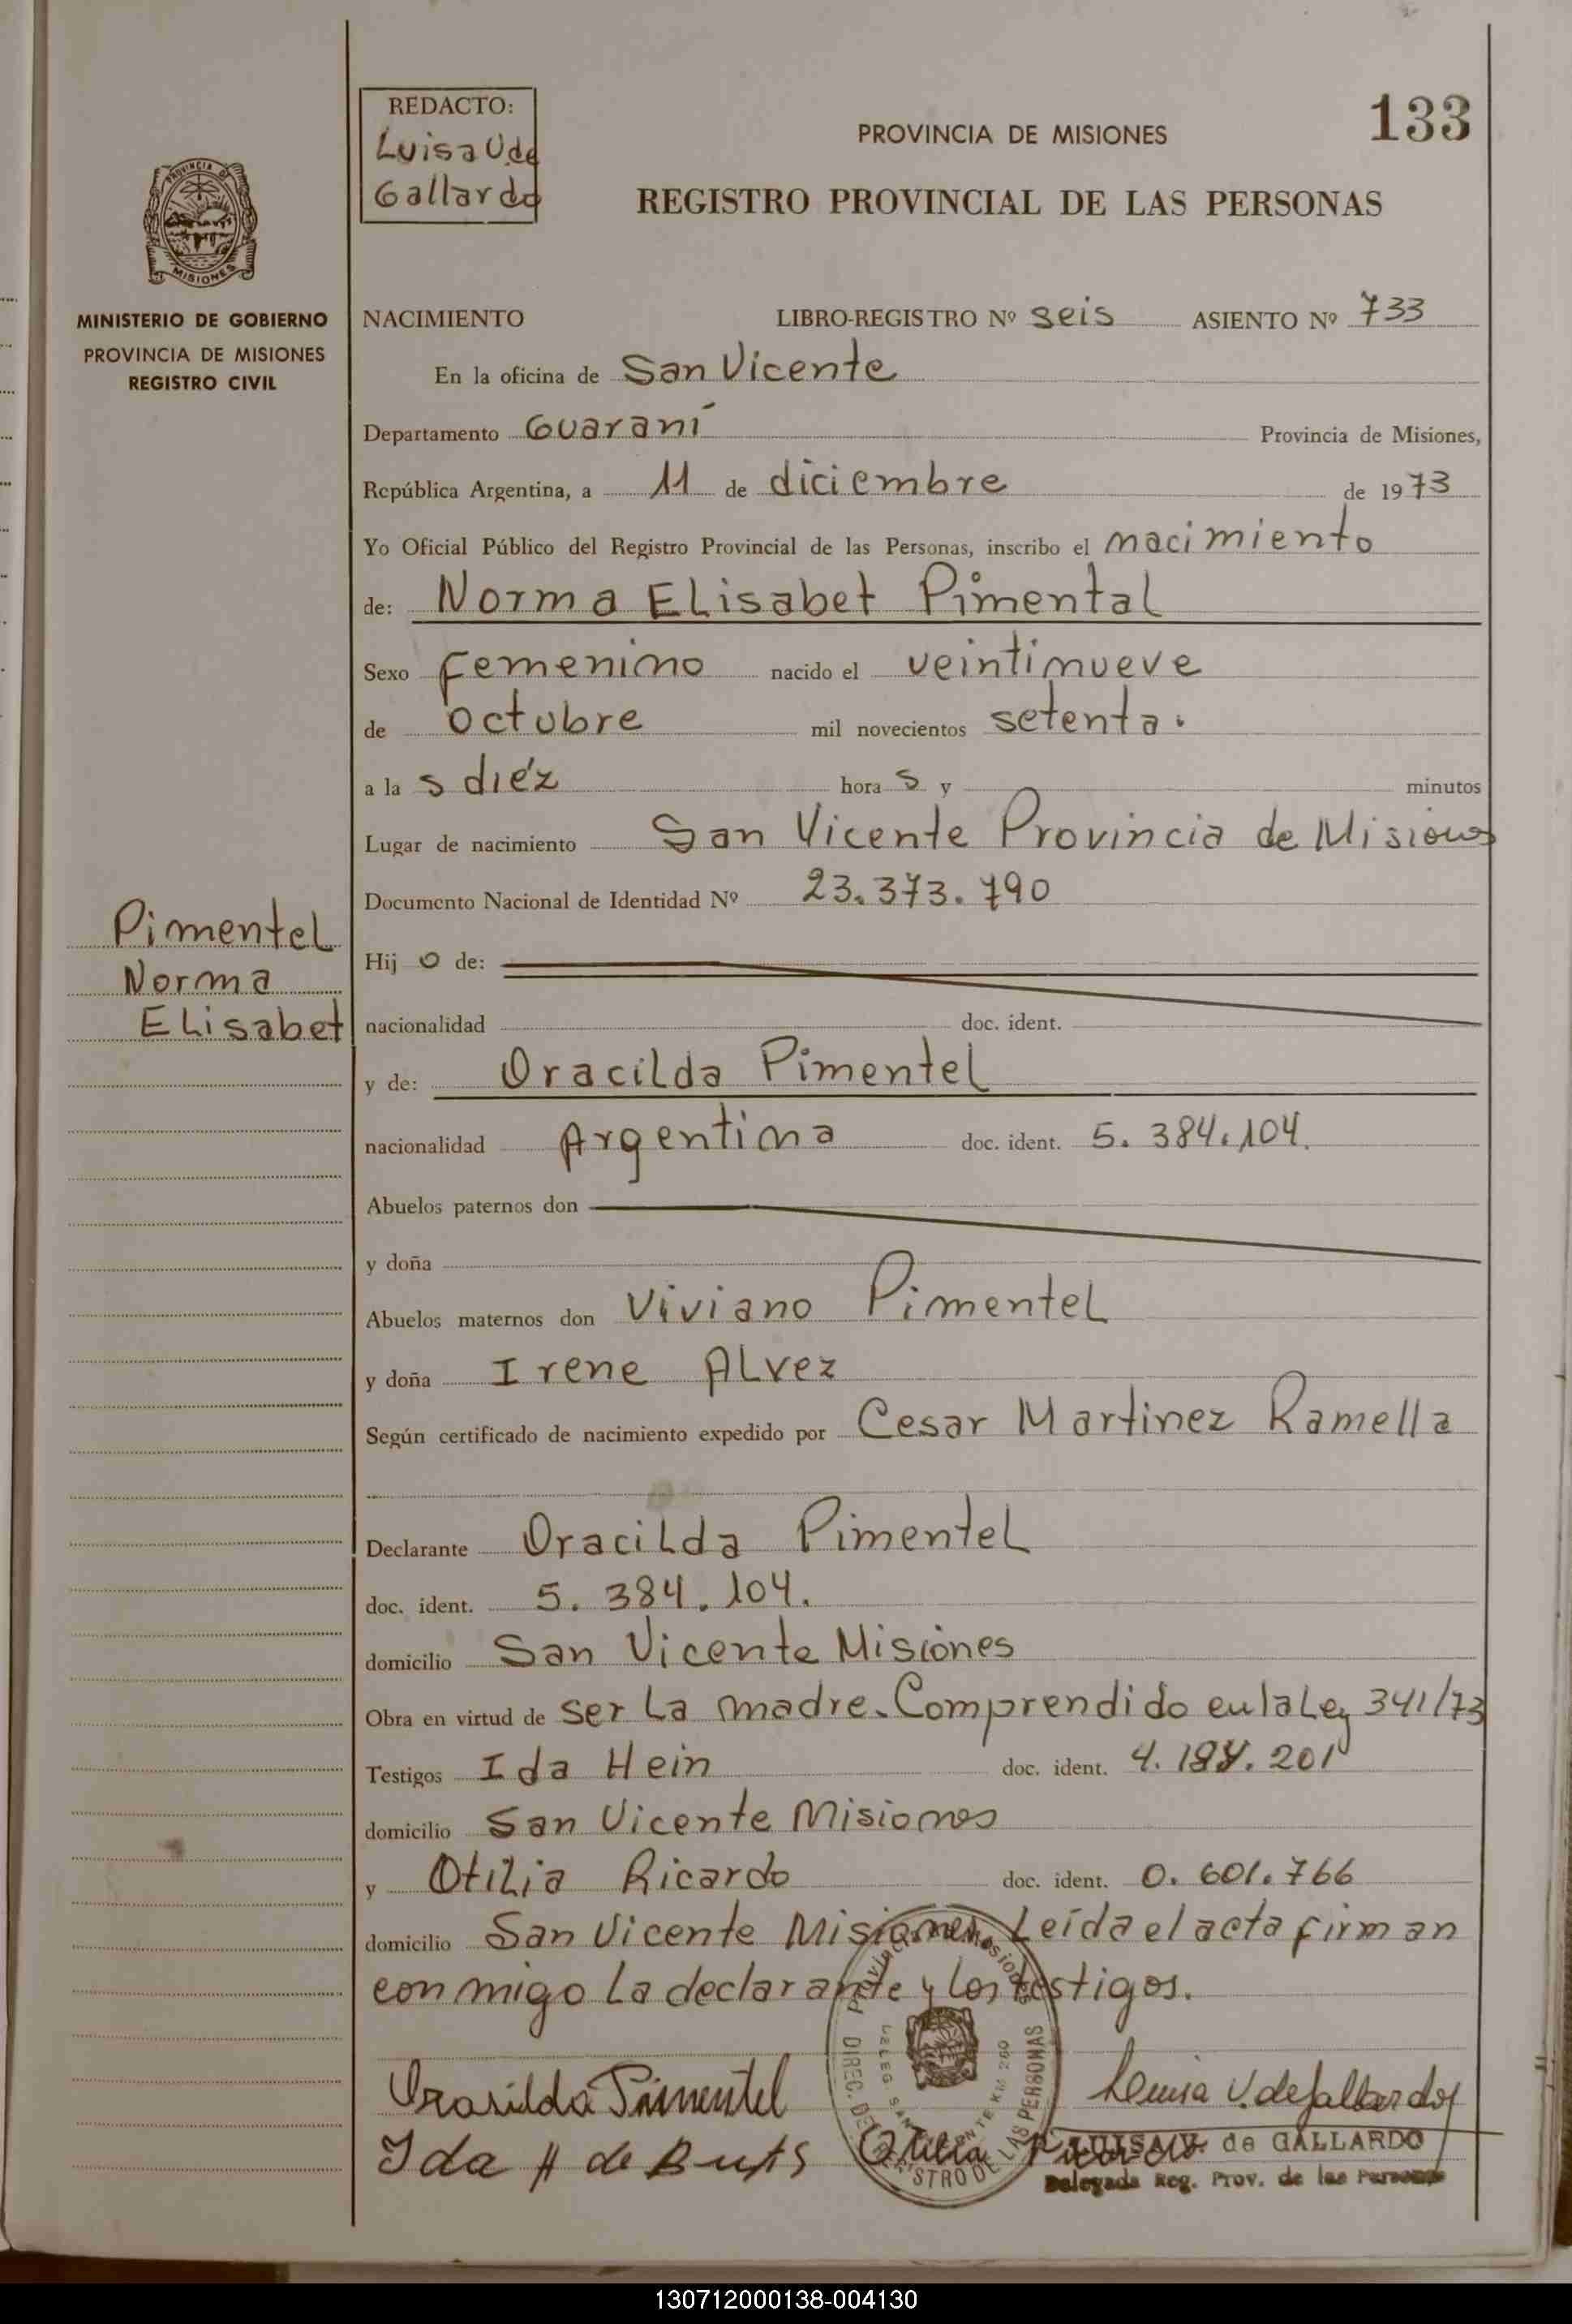 133
REDACTO:
Luisa V. de
Gallardo
PROVINCIA DE MISIONES
REGISTRO PROVINCIAL DE LAS PERSONAS
PROVINCIA D
MISIONES
MINISTERIO DE GOBIERNO
PROVINCIA DE MISIONES
REGISTRO CIVIL
NACIMIENTO LIBRO-REGISTRO Nº seis ASIENTO Nº 733
En la oficina de San Vicente
Departamento Guaraní Provincia de Misiones,
República Argentina, a 11 de diciembre de 1973
Yo Oficial Público del Registro Provincial de las Personas, inscribo el nacimiento
de: Norma Elisabet Pimental
Sexo femenino nacido el veintinueve
de octubre mil novecientos setenta.
a la s diéz hora s y minutos
Lugar de nacimiento San Vicente Provincia de Misiones
Documento Nacional de Identidad Nº 23.373.790
Pimentel
Norma
Elisabet
Hij o de:
nacionalidad doc. ident.
y de: Oracilda Pimentel
nacionalidad Argentina doc. ident. 5.384.104.
Abuelos paternos don
y doña
Abuelos maternos don Viviano Pimentel
y doña Irene Alvez
Según certificado de nacimiento expedido por Cesar Martinez Ramella
Declarante Oracilda Pimentel
doc. ident. 5.384.104.
domicilio San Vicente Misiones
Obra en virtud de ser la madre. Comprendido en la Ley 341/73
Testigos Ida Hein doc. ident. 4. 201
domicilio San Vicente Misiones
y Otilia Ricardo doc. ident. 0.601.766
domicilio San Vicente Misiones Leída el acta firman
conmigo la declarante y los testigos.
Orasilda Pimentel
Luisa V. de Gallardo
Ida H de
Otilia Ricardo
LUISA V. de GALLARDO
Delegada Reg. Prov. de las Personas
130712000138-004130